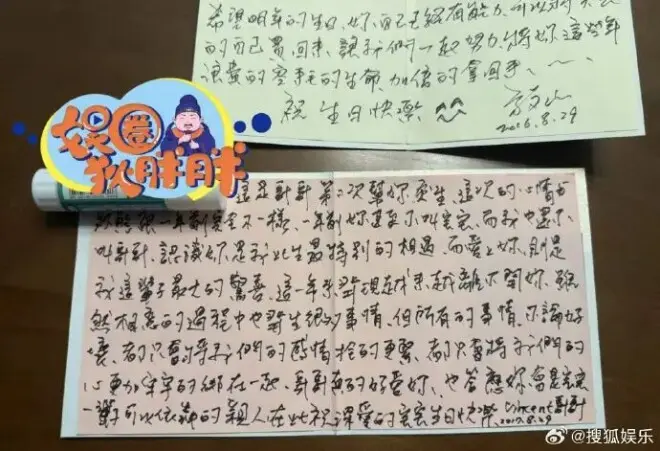 希望明年的生日,妳自己已經有能力,可以將
的自己買回來,讓我們一起努力將妳這些年
浪費的 的生命,加倍的拿回來~~
祝 生日快樂 ^^
2016.8.29
娛圈
胖胖
這是哥哥第二次幫妳慶生,這次的心情與
狀態跟一年前完全不一樣,一年前妳還不叫寶寶,而我也還不
叫哥哥,認識妳是我此生最特別的相遇,而愛上妳,則是
我這輩子最大的驚喜,這一年來發現越來越離不開妳,雖
然相處的過程中也發生很多事情,但所有的事情,不論好
壞,都只會將我們的感情拴的更緊,都只會將我們的
心更加牢牢的綁在一起,哥哥真的好愛妳,也答應妳會是寶寶
一輩子可以依靠的親人在此祝親愛的寶寶生日快樂 Vincent哥哥
2017.8.29
@搜狐娱乐